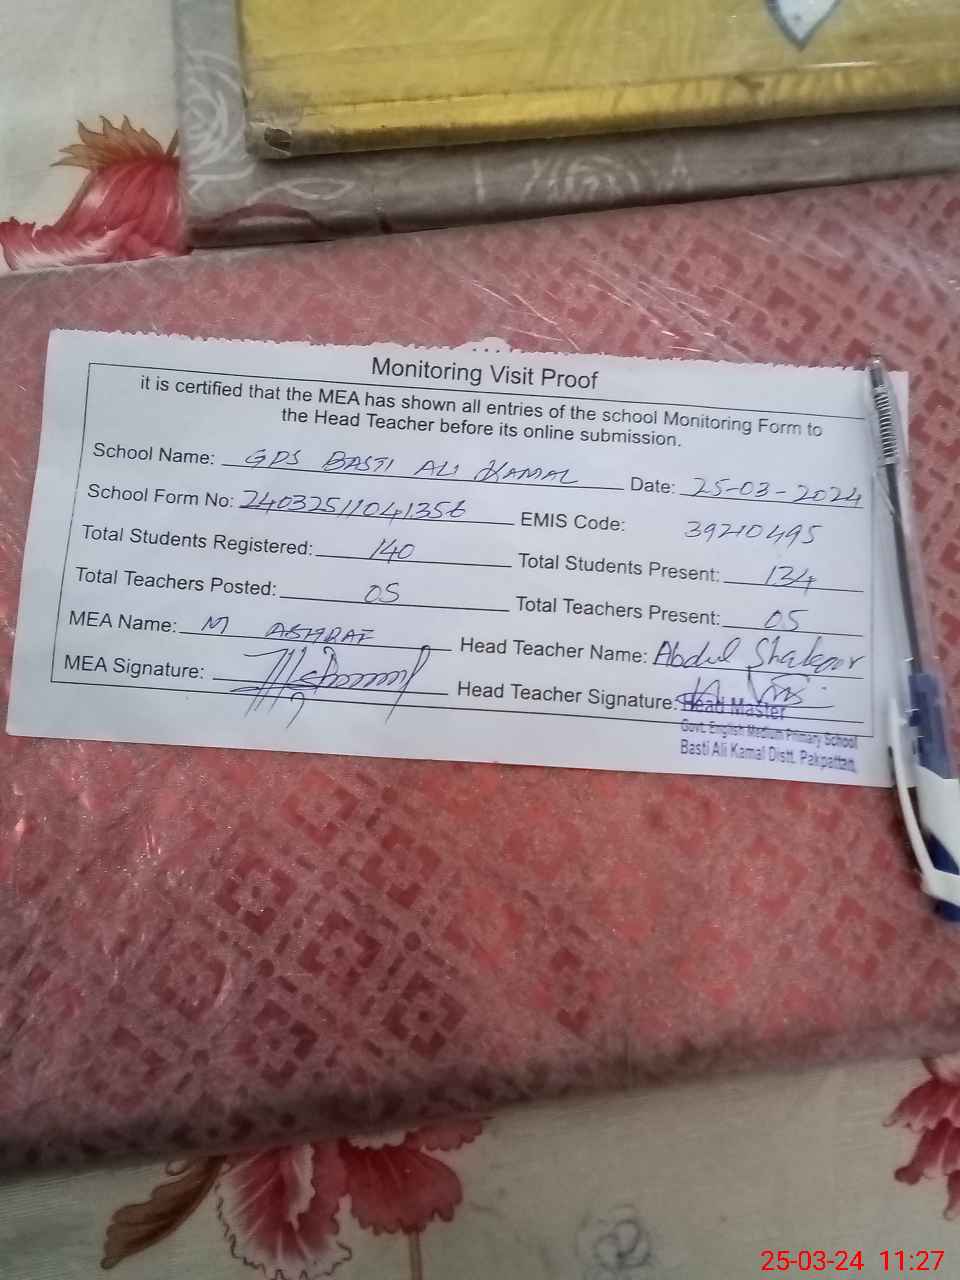 Monitoring Visit Proof
it is certified that the MEA has shown all entries of the school Monitoring Form to
the Head Teacher before its online submission.
School Name: GPS BASTI ALI KAMAL Date: 25-03-2024
School Form No: 24032511041356 EMIS Code: 39210495
Total Students Registered: 140 Total Students Present: 134
Total Teachers Posted: 05 Total Teachers Present: 05
MEA Name: M ASHRAF Head Teacher Name: Abdul Shakoor
MEA Signature: Head Teacher Signature:
Head Master
Govt. English Medium Primary School
Basti Ali Kamal Distt. Pakpattan.
25-03-24 11:27